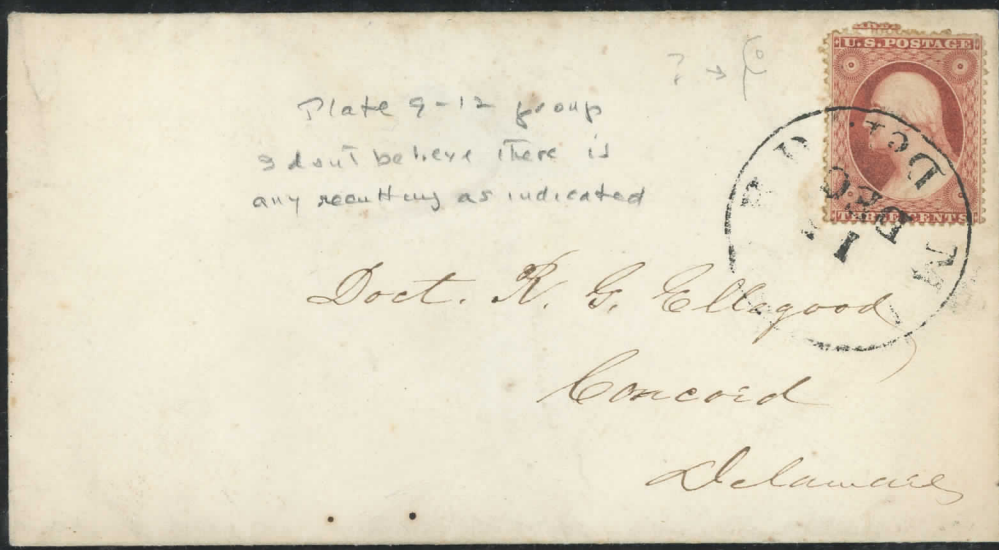 U.S. POSTAGE
THREE CENTS
Plate 9-12 group
I don't believe there is
any recutting as indicated
? →
DEC
1
Doct. R. G. Ellegood
Concord
Delaware